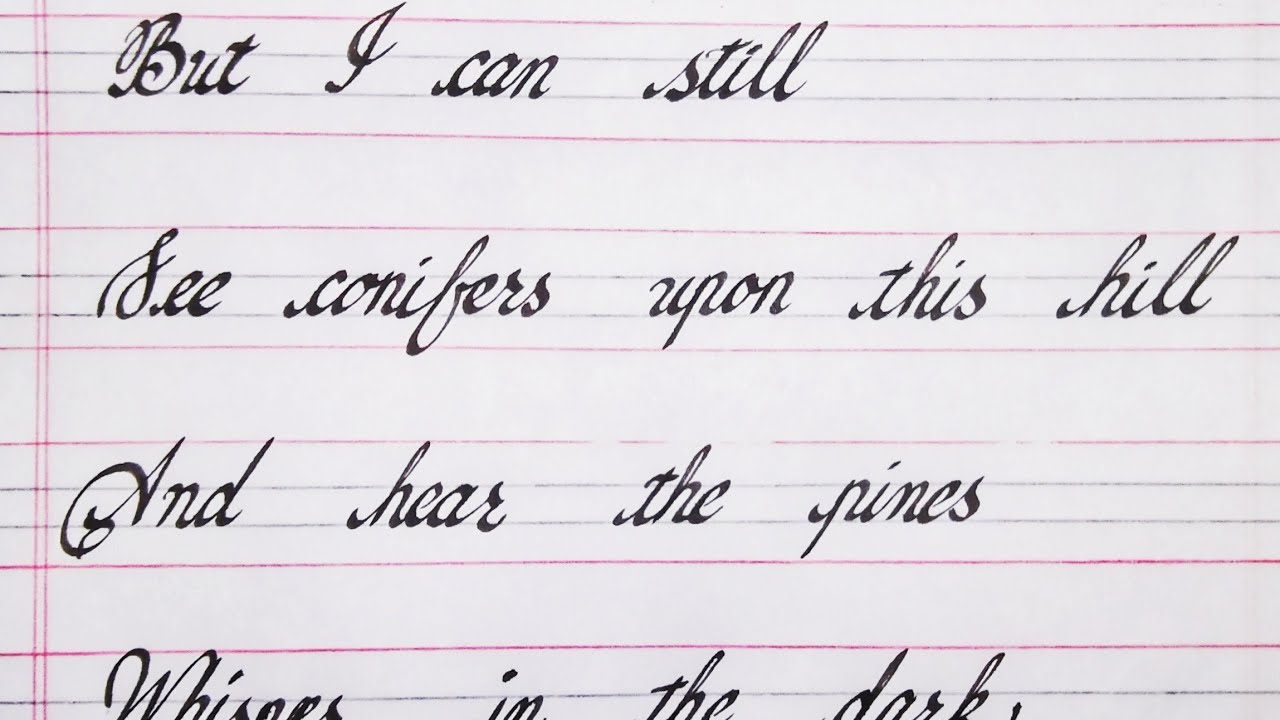 But I can still
See conifers upon this hill
And hear the pines
Whisper in the dark,